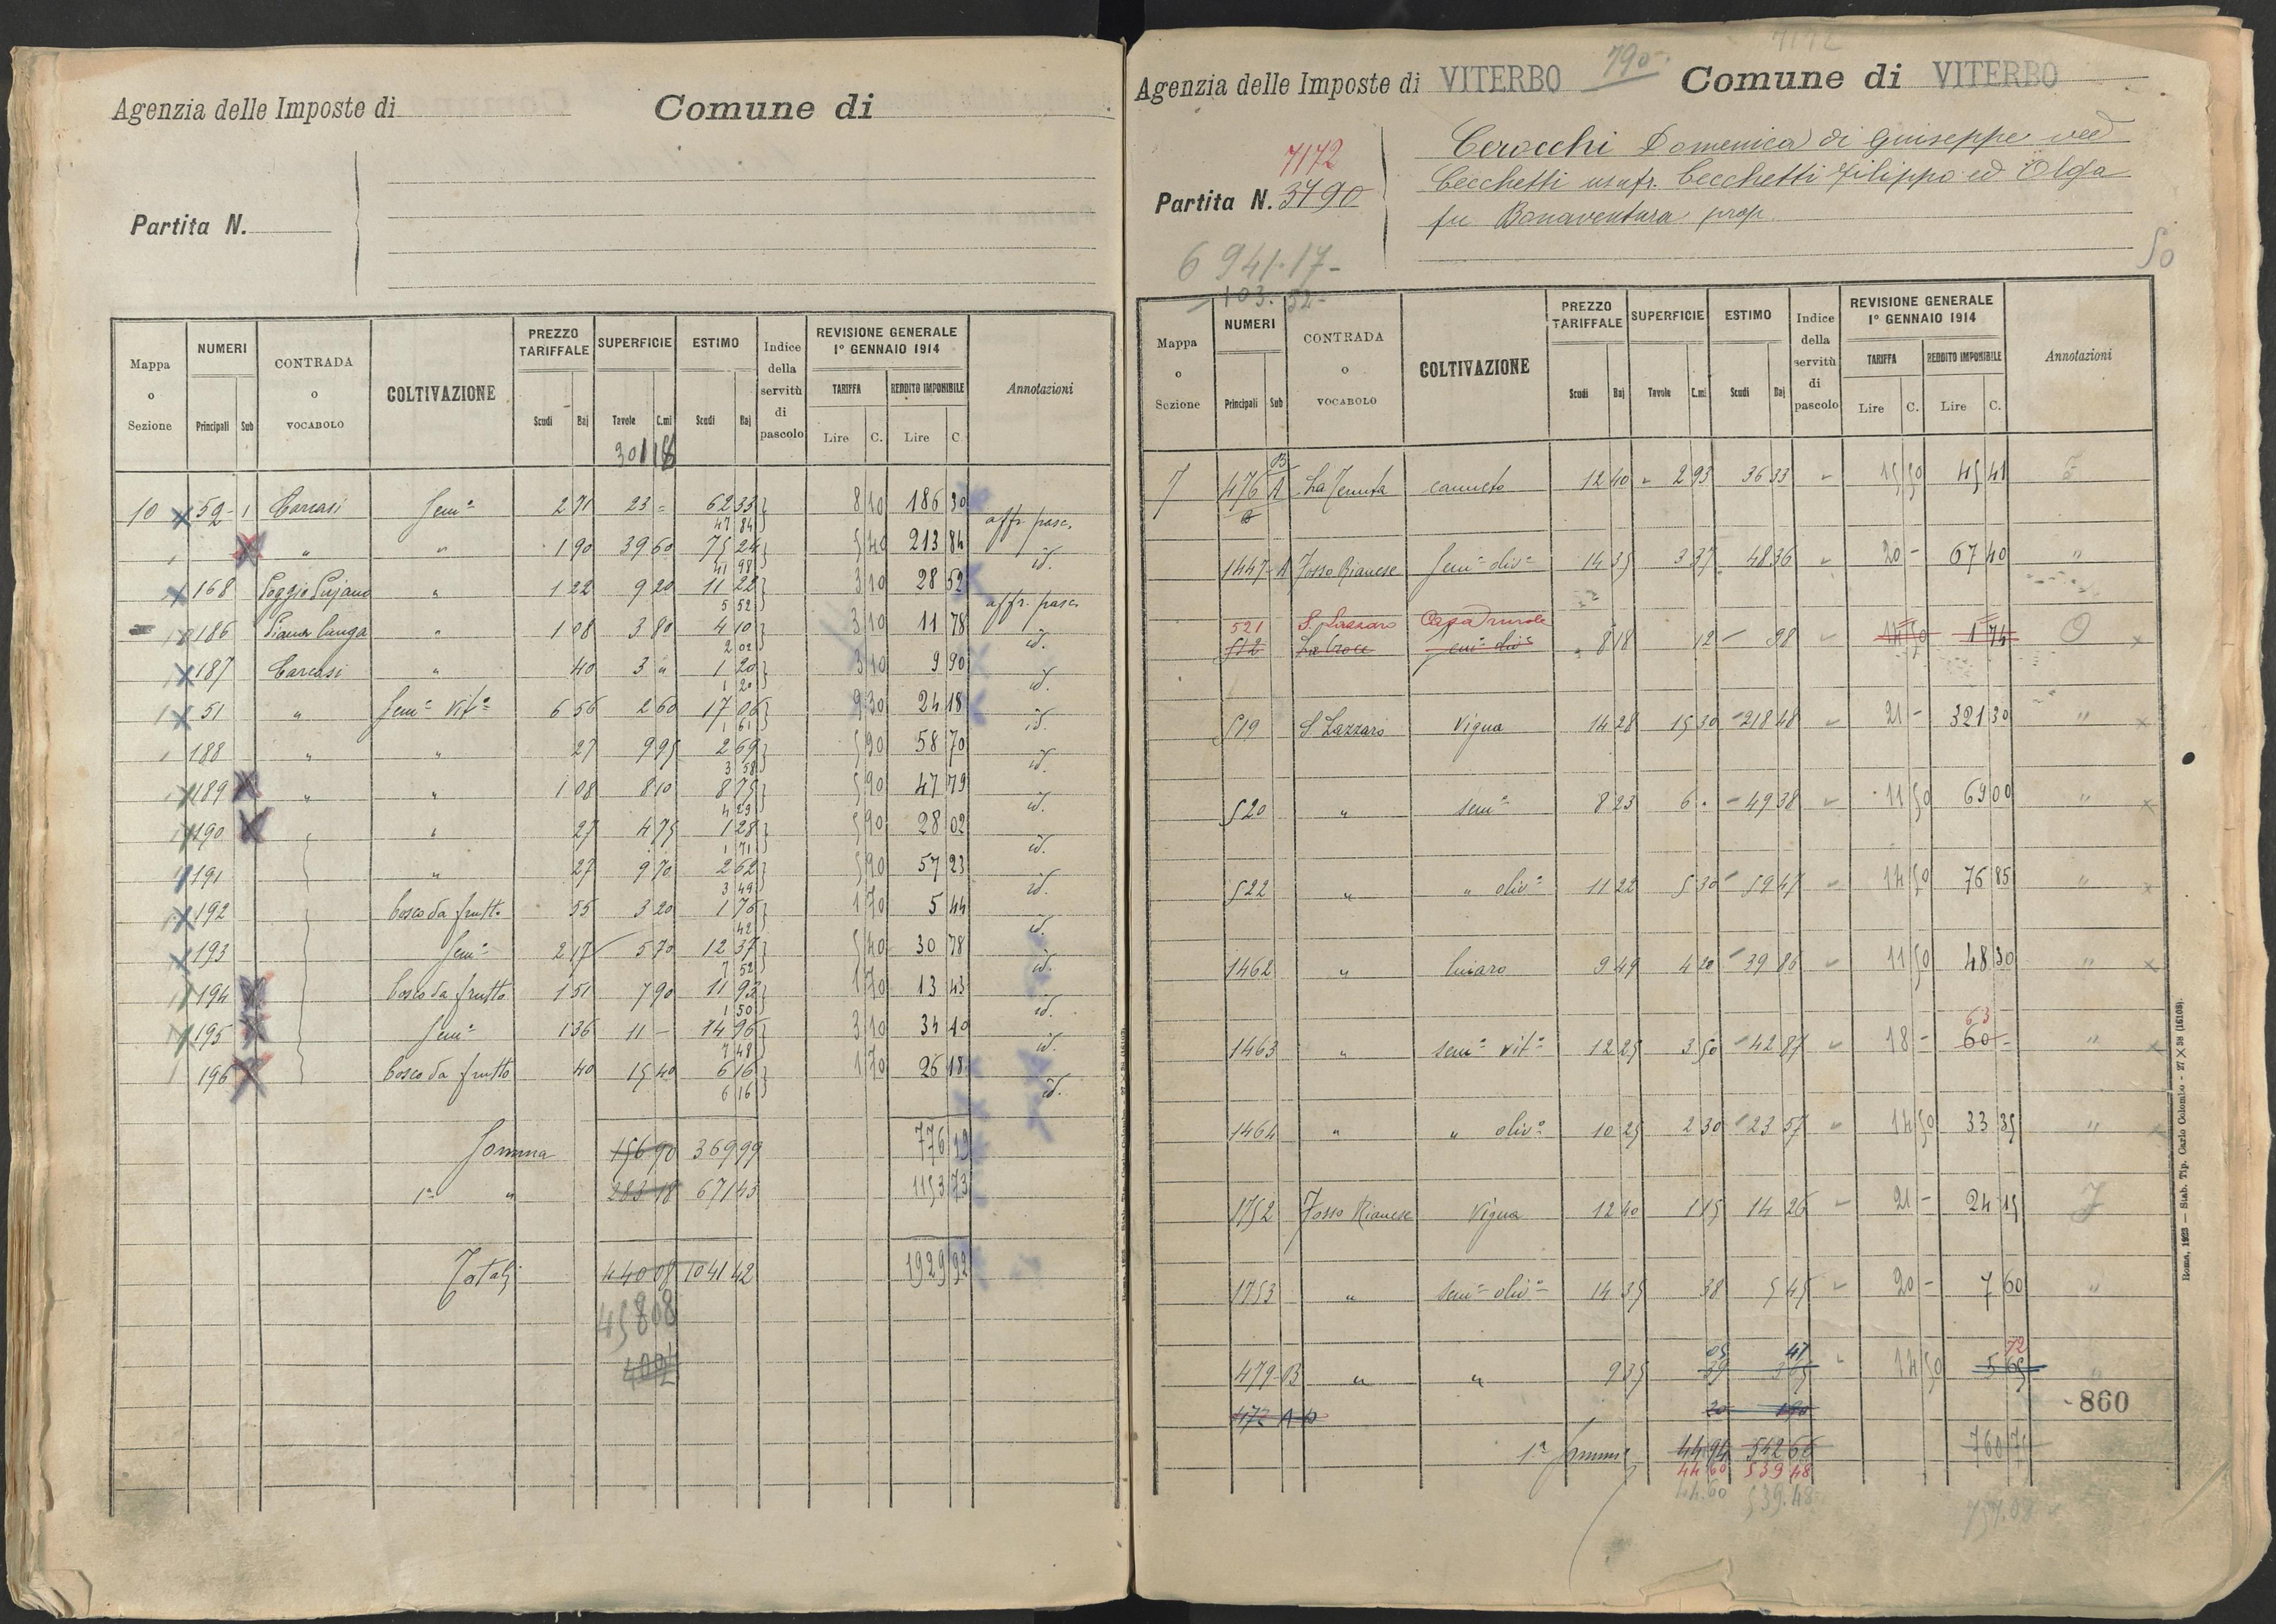 Agenzia delle Imposte di
Comune di
Partita N.
Mappa o Sezione
NUMERI
Principali Sub
CONTRADA o VOCABOLO
COLTIVAZIONE
PREZZO TARIFFALE
Scudi Baj
SUPERFICIE
Tavole C.mi
ESTIMO
Scudi Baj
Indice della servitù di pascolo
REVISIONE GENERALE 1° GENNAIO 1914
TARIFFA
Lire C.
REDDITO IMPONIBILE
Lire C.
Annotazioni
301 18
10 59 1 Carcasi Sem° 2 71 23 = 62 33 8 10 186 30
47 84 affr. pasc.
" " " 1 90 39 60 75 24 5 40 213 84
41 98 id.
168 Poggio Pujano " 1 22 9 20 11 22 3 10 28 52
5 52 affr. pasc.
186 Piana lunga " 1 08 3 80 4 10 3 10 11 78
2 02 id.
187 Carcasi " 40 3 " 1 20 3 10 9 90
1 20 id.
51 " Sem° Vit° 6 56 2 60 17 06 9 30 24 18
1 61 id.
188 " " 27 9 95 2 69 5 90 58 70
3 58 id.
189 " " 1 08 8 10 8 75 5 90 47 79
4 23 id.
190 " 27 4 75 1 28 5 90 28 02
1 71 id.
191 " 27 9 70 2 62 5 90 57 23
3 49 id.
192 bosco da frutto 55 3 20 1 76 1 70 5 44
42 id.
193 Sem° 2 17 5 70 12 37 5 40 30 78
7 52 id.
194 bosco da frutto 1 51 7 90 11 93 1 70 13 43
1 50 id.
195 Sem° 1 36 11 - 14 96 3 10 34 10
7 48 id.
196 bosco da frutto 40 15 40 6 16 1 70 26 18
6 16 id.
Somma 156 90 369 99 776 19
1ª " 283 18 671 43 1153 73
Totali 440 08 1041 42 1929 92
458 08
Agenzia delle Imposte di VITERBO
790
Comune di VITERBO
7172
7172
Partita N. 3790
Cerocchi Domenica di Giuseppe ved
Cecchetti usufr. Cecchetti Filippo ed Olga
fu Bonaventura prop.
6 941.17-
103.52-
50
Mappa o Sezione
NUMERI
Principali Sub
CONTRADA o VOCABOLO
COLTIVAZIONE
PREZZO TARIFFALE
Scudi Baj
SUPERFICIE
Tavole C.mi
ESTIMO
Scudi Baj
Indice della servitù di pascolo
REVISIONE GENERALE 1° GENNAIO 1914
TARIFFA
Lire C.
REDDITO IMPONIBILE
Lire C.
Annotazioni
7 476 A La Tenuta canneto 12 40 2 93 36 33 15 50 45 41
1447 A Fosso Rianese Sem° oliv° 14 35 3 37 48 36 20 - 67 40 "
521 S. Lazzaro Casa rurale
512 La Croce sem° oliv° 8 18 12 98 14 50 1 74
519 S. Lazzaro Vigna 14 28 15 30 218 48 21 - 321 30 "
520 " sem° 8 23 6 . 49 38 11 50 69 00 "
522 " " oliv° 11 22 5 30 59 47 14 50 76 85 "
1462 " 9 49 4 20 39 86 11 50 48 30 "
63
1463 " sem° vit° 12 25 3 50 42 87 18 - 60 - "
1464 " " oliv° 10 25 2 30 23 57 14 50 33 35 "
1752 Fosso Rianese Vigna 12 40 1 15 14 26 21 - 24 15
1753 " sem° oliv° 14 35 38 5 45 20 - 7 60 "
05 47 72
479 B " " 9 35 39 3 65 14 50 5 65 "
472 A 20 1 90
860
1ª Somma 44 94 542 66 760 75
44 60 539 48
44.60 539.48
757.08
Roma, 1923 — Stab. Tip. Carlo Colombo - 27 × 38 (16103).